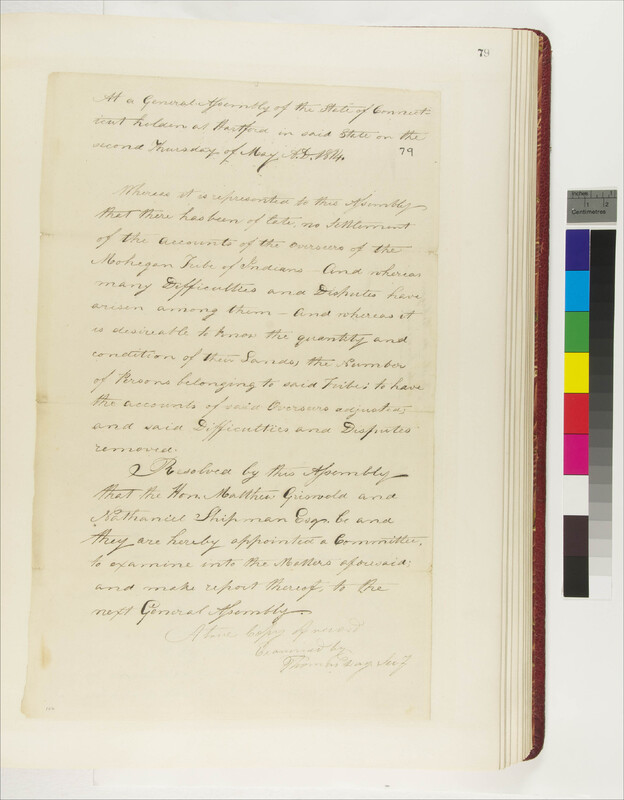 79
At a General Assembly of the State of Connect-
icut holden at Hartford in said State on the
second Thursday of May A.D. 1814.
79
Whereas it is represented to this Assembly
that there has been of late, no Settlement
of the Accounts of the Overseers of the
Mohegan Tribe of Indians - And whereas
many Difficulties and Disputes have
arisen among them - And whereas it
is desireable to know the quantity and
condition of their Lands, the Number
of Persons belonging to said Tribe; to have
the accounts of said Overseers adjusted,
and said Difficulties and Disputes
removed.
Resolved by this Assembly
that the Hon. Matthew Griswold and
Nathaniel Shipman Esqs. be and
they are hereby appointed a Committee,
to examine into the Matters aforesaid;
and make report thereof, to the
next General Assembly
A true Copy of record
Examined by
Thomas Day Secy
Inches
1
2
Centimetres